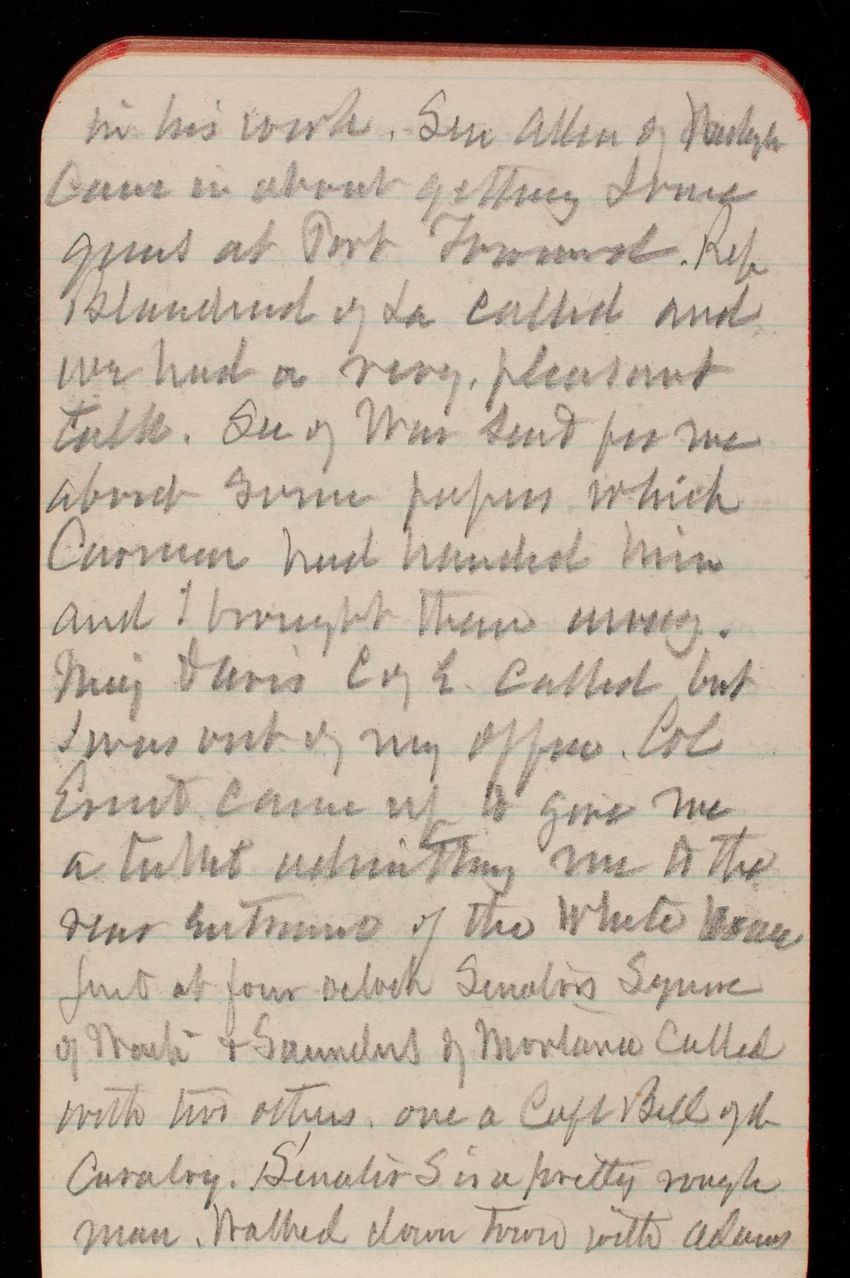 in his work. Sen Allen of Washgtn
Came in about getting some
guns at Port Townsend. Rep
Blanchard of La called and
we had a very, pleasant
talk. Sec of War sent for me
about some papers which
Carman had handed him
and I brought them away.
Maj Davis C of E. called but
I was out of my office. Col
Ernst came up to give me
a ticket admitting me to the
rear entrance of the White House
Just at four oclock Senators Squire
of Wash & Saunders of Montana called
with two others. one a Capt Bell 7th
Cavalry. Senator S is a pretty rough
man. Walked down town with Adams